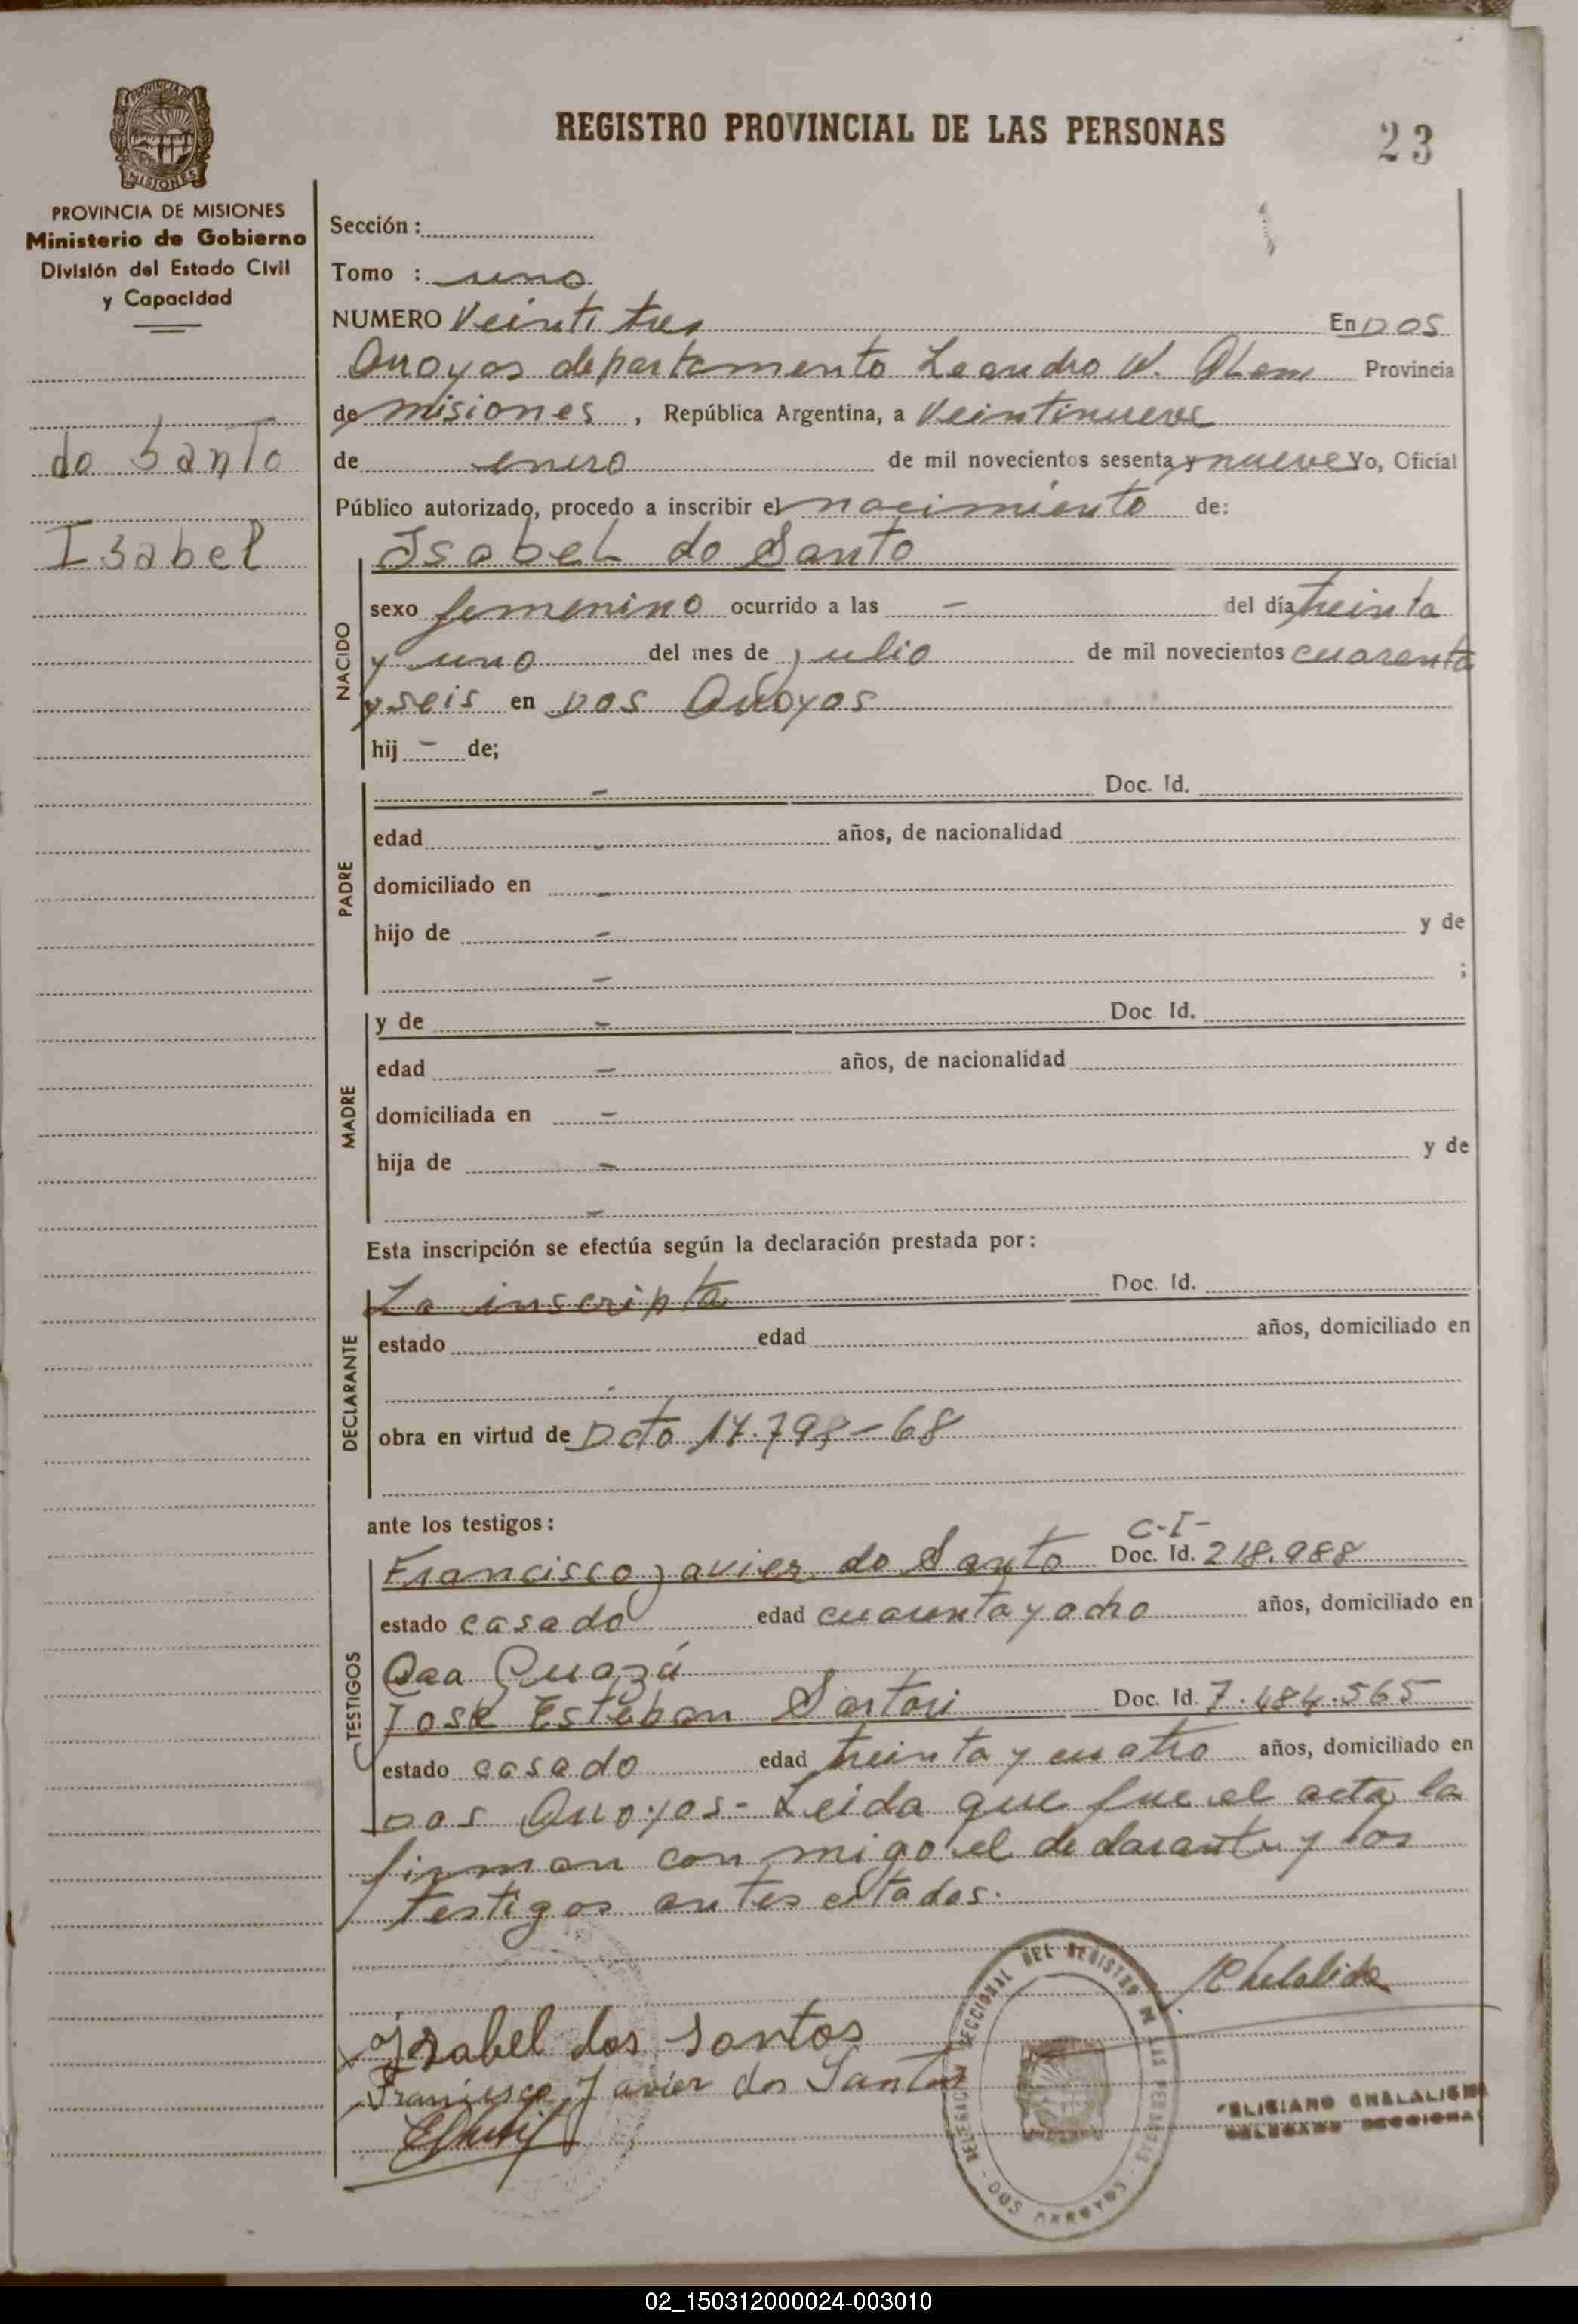 REGISTRO PROVINCIAL DE LAS PERSONAS
23
PROVINCIA DE MISIONES
MISIONES
PROVINCIA DE MISIONES
Ministerio de Gobierno
División del Estado Civil
y Capacidad
do Santo
Isabel
Sección :
Tomo : uno
NUMERO Veinti tres En DOS
Arroyos departamento Leandro N. Alem Provincia
de misiones , República Argentina, a Veintinueve
de enero de mil novecientos sesenta y nueve Yo, Oficial
Público autorizado, procedo a inscribir el nacimiento de:
NACIDO
Isabel do Santo
sexo femenino ocurrido a las - del día treinta
y uno del mes de julio de mil novecientos cuarenta
y seis en DOS Arroyos
hij - de;
PADRE
- Doc. Id.
edad - años, de nacionalidad
domiciliado en -
hijo de - y de
- ;
MADRE
y de - Doc. Id.
edad - años, de nacionalidad
domiciliada en -
hija de - y de
-
Esta inscripción se efectúa según la declaración prestada por :
DECLARANTE
La inscripta Doc. Id.
estado edad años, domiciliado en
obra en virtud de Dcto 17.798-68
ante los testigos :
TESTIGOS
C-I-
Francisco Javier do Santo Doc. Id. 218.988
estado casado edad cuarenta y ocho años, domiciliado en
Caa Guazú
José Esteban Sartori Doc. Id. 7.484.565
estado casado edad treinta y cuatro años, domiciliado en
Dos Arroyos - Leida que fue el acta la
firman con migo el declarante y los
testigos antes citados.
Isabel dos Santos
Francisco Javier dos Santos
DELEGACION SECCIONAL DEL REGISTRO DE LAS PERSONAS
- DOS ARROYOS -
FELICIANO CHELALICHE
DELEGADO SECCIONAL
02_150312000024-003010